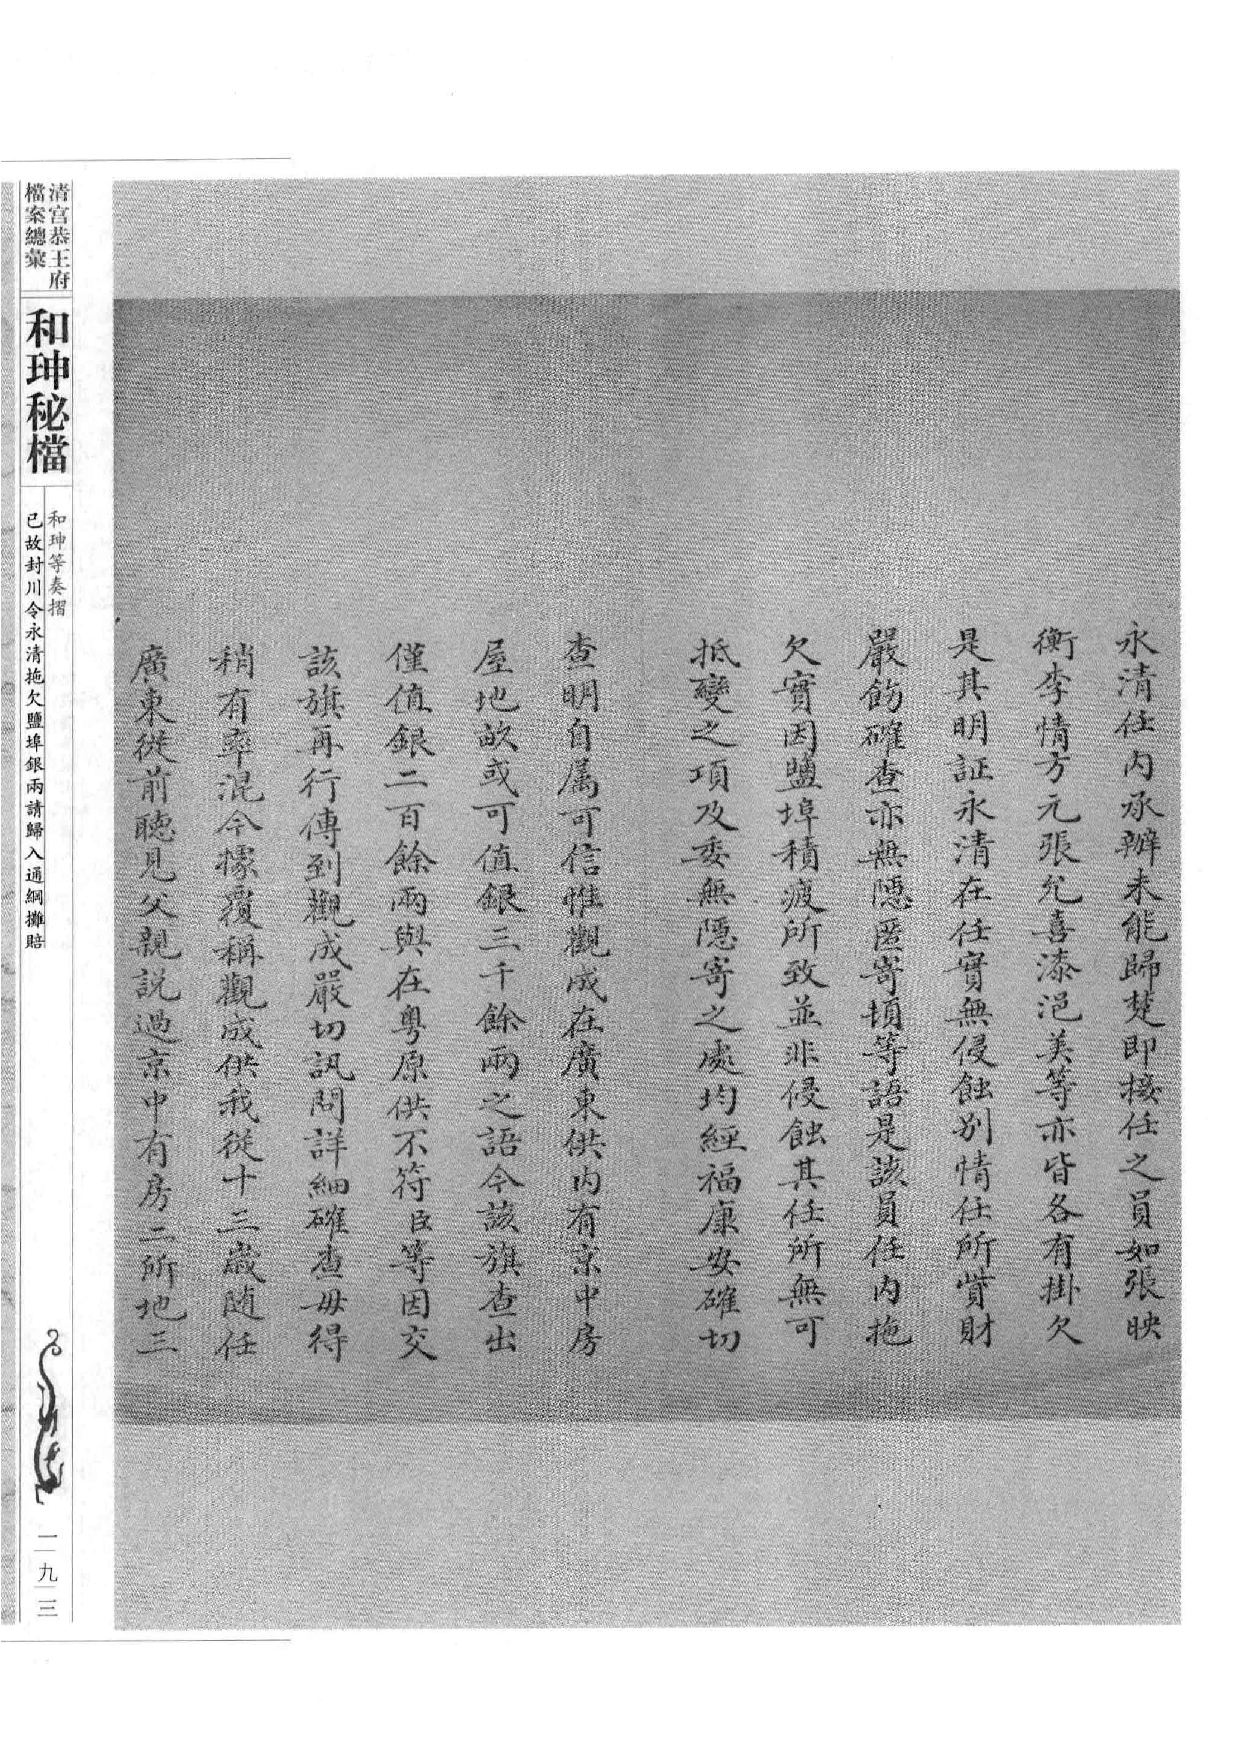 永清任內承辦未能歸楚即接任之員如張映
衡李情方元張允喜漆浥美等亦皆各有掛欠
是其明証永清在任實無侵蝕别情任所貲財
嚴飭確查亦無隱匿寄頓等語是該員任內拖
欠實因鹽埠積疲所致並非侵蝕其任所無可
抵變之項及委無隱寄之處均經福康安確切
查明自属可信惟觀成在廣東供内有京中房
屋地畝或可值銀三千餘兩之語今該旗查出
僅值銀二百餘兩與在粤原供不符臣等因交
該旗再行傳到觀成嚴切訊問詳細確查毋得
稍有率混今據覆稱觀成供我從十三歲随任
廣東從前聽見父親説過京中有房二所地三
清宮恭王府
檔案總彙
和珅秘檔
和珅等奏摺
已故封川令永清拖欠鹽埠銀兩請歸入通綱攤賠
一九三